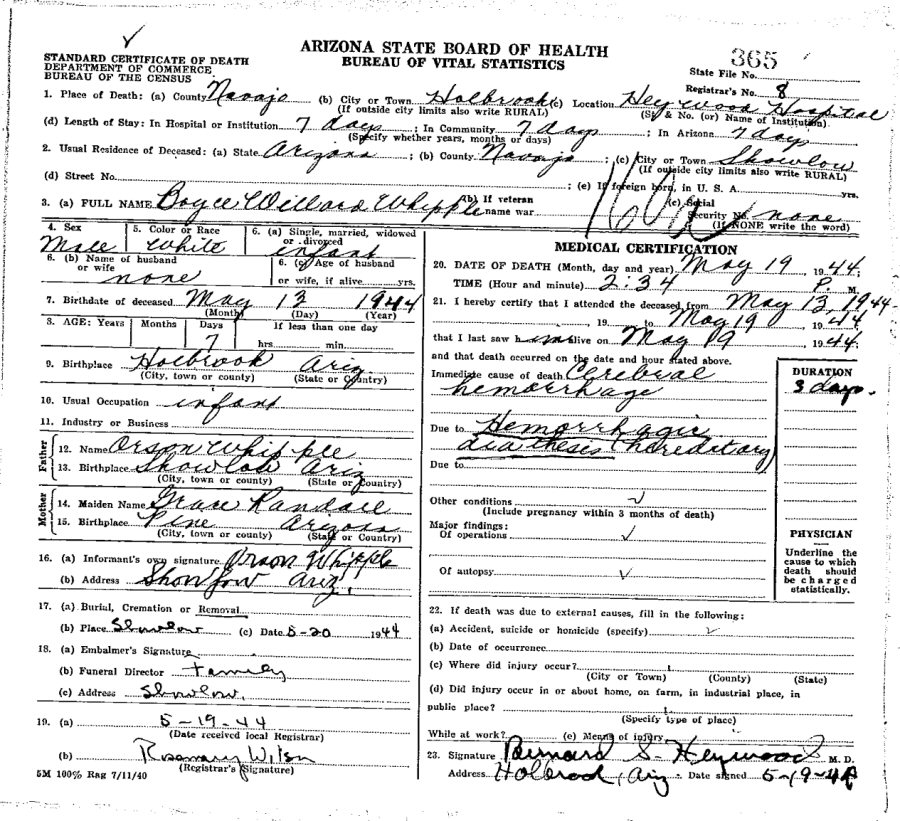 ARIZONA STATE BOARD OF HEALTH
BUREAU OF VITAL STATISTICS
STANDARD CERTIFICATE OF DEATH
DEPARTMENT OF COMMERCE
BUREAU OF THE CENSUS
365
State File No.
Registrar's No. 8
1. Place of Death: (a) County Navajo (b) City or Town Holbrook (c) Location Heywood Hospital
(If outside city limits also write RURAL) (St. & No. (or) Name of Institution)
(d) Length of Stay: In Hospital or Institution 7 days ; In Community 7 days ; In Arizona 7 days
(Specify whether years, months or days)
2. Usual Residence of Deceased: (a) State Arizona ; (b) County Navajo ; (c) City or Town Showlow
(If outside city limits also write RURAL)
(d) Street No. ; (e) If foreign born, in U. S. A. yrs.
3. (a) FULL NAME Boyce Willard Whipple (b) If veteran name war (c) Social Security No. none
(If NONE write the word)
4. Sex Male 5. Color or Race White 6. (a) Single, married, widowed or divorced infant
6. (b) Name of husband or wife none 6. (c) Age of husband or wife, if alive yrs.
7. Birthdate of deceased May 13 1944
(Month) (Day) (Year)
8. AGE: Years Months Days 7 If less than one day hrs. min.
9. Birthplace Holbrook Ariz
(City, town or county) (State or Country)
10. Usual Occupation infant
11. Industry or Business
Father
12. Name Orson Whipple
13. Birthplace Showlow Ariz
(City, town or county) (State or Country)
Mother
14. Maiden Name Grace Randall
15. Birthplace Pine Arizona
(City, town or county) (State or Country)
16. (a) Informant's own signature Orson Whipple
(b) Address Showlow Ariz.
17. (a) Burial, Cremation or Removal
(b) Place Showlow (c) Date 5-20 1944
18. (a) Embalmer's Signature
(b) Funeral Director Family
(c) Address Showlow.
19. (a) 5-19-44
(Date received local Registrar)
(b) Rosemary Wilson
(Registrar's Signature)
5M 100% Rag 7/11/40
MEDICAL CERTIFICATION
20. DATE OF DEATH (Month, day and year) May 19 1944
TIME (Hour and minute) 2:34 P. M.
21. I hereby certify that I attended the deceased from May 13, 1944
, 19 to May 19 1944
that I last saw him alive on May 19 1944
and that death occurred on the date and hour stated above.
Immediate cause of death Cerebral
hemorrhage
DURATION
3 days.
Due to Hemorrhagic
diathesis (hereditary)
Due to
Other conditions
(Include pregnancy within 3 months of death)
Major findings:
Of operations
Of autopsy
PHYSICIAN
Underline the
cause to which
death should
be charged
statistically.
22. If death was due to external causes, fill in the following:
(a) Accident, suicide or homicide (specify)
(b) Date of occurrence
(c) Where did injury occur?
(City or Town) (County) (State)
(d) Did injury occur in or about home, on farm, in industrial place, in
public place?
(Specify type of place)
While at work? (e) Means of injury
23. Signature Bernard S. Heywood M. D.
Address Holbrook, Ariz. Date signed 5-19-44